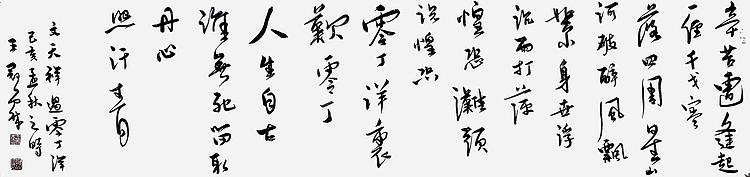 辛苦遭逢起
一經干戈寥
落四周星山
河破碎風飄
絮身世浮
沉雨打萍
惶恐灘頭
說惶恐
零丁洋裏
歎零丁
人生自古
誰無死留取
丹心
照汗青
文天祥過零丁洋
己亥孟秋之時
王